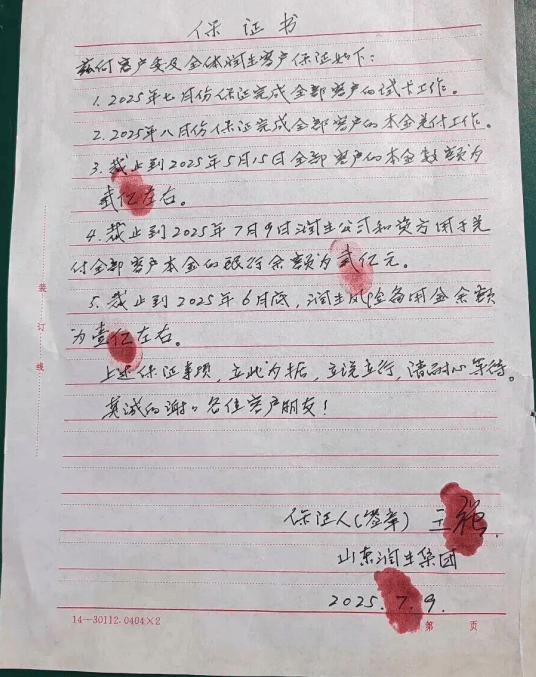 保证书
兹付客户委及全体润生客户保证如下：
1.2025年七月份保证完成全部客户的试卡工作。
2.2025年八月份保证完成全部客户的本金兑付工作。
3.截止到2025年5月15日全部客户的本金数额为
贰亿左右。
4.截止到2025年7月9日润生公司和资方用于兑
付全部客户本金的银行余额为贰亿元。
5.截止到2025年6月底，润生风险备用金余额
为壹亿左右。
上述保证事项，立此为据，立说立行，请耐心等待。
真诚的谢谢各位客户朋友！
保证人(签章) 王强
山东润生集团
2025.7.9.
装订线
14—30112.0404×2
第 页